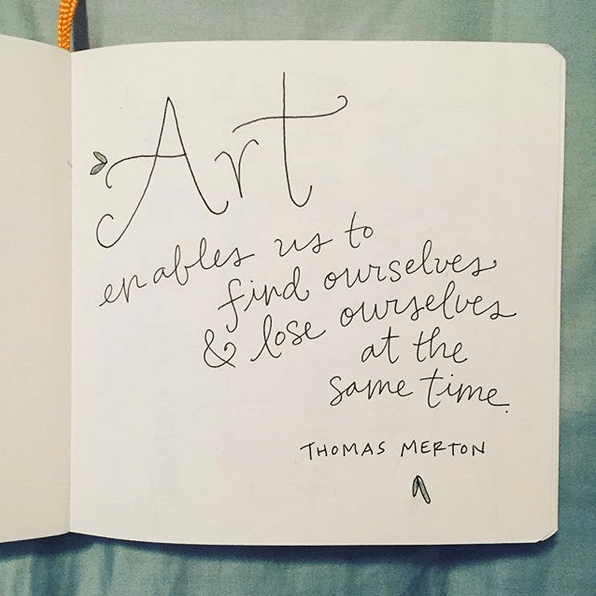 Art
enables us to
find ourselves
& lose ourselves
at the
same time.
THOMAS MERTON